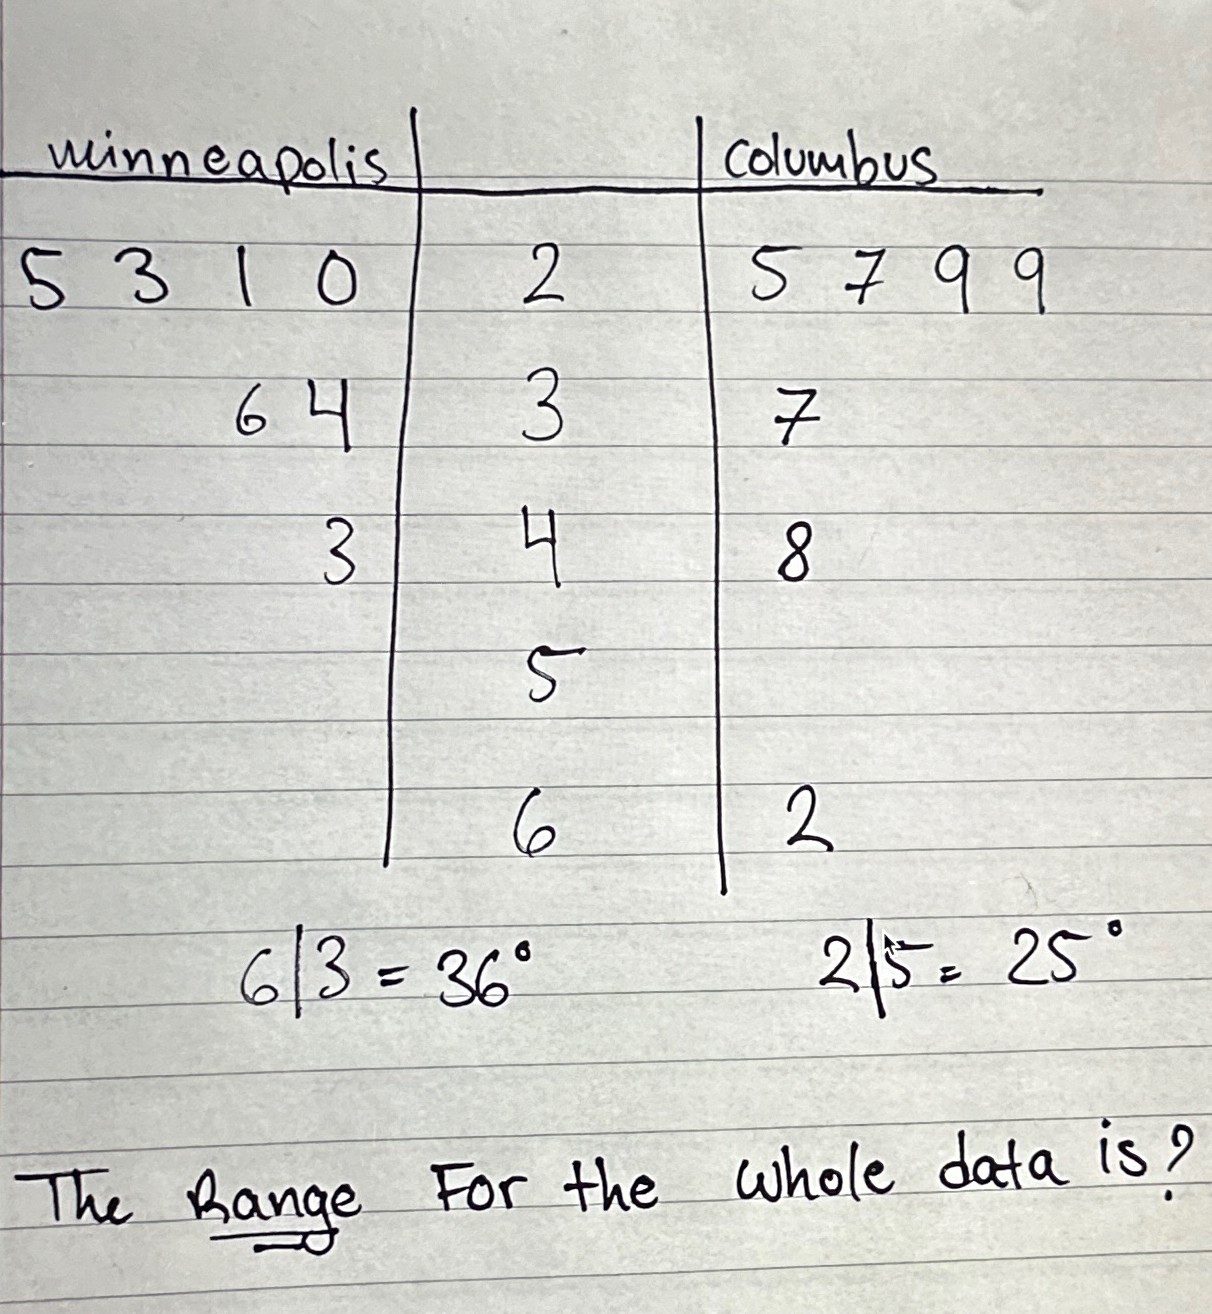 minneapolis columbus
5 3 1 0 2 5 7 9 9
6 4 3 7
3 4 8
5
6 2
6|3 = 36° 2|5 = 25°
The Range For the whole data is?